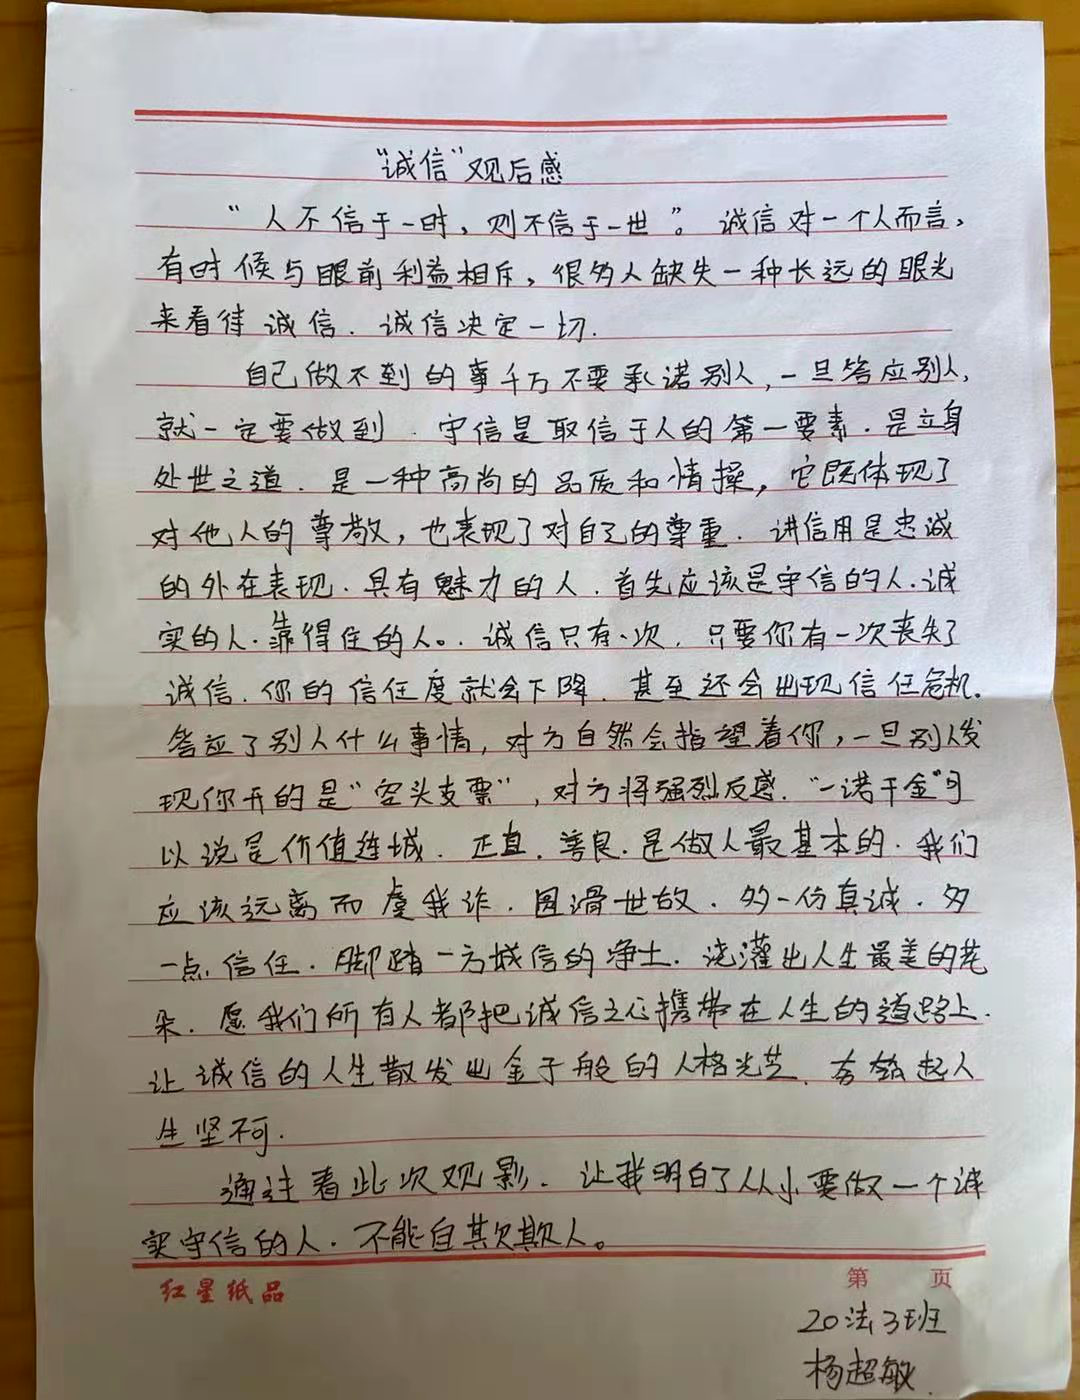 “诚信”观后感
“人不信于一时，则不信于一世”。诚信对一个人而言，
有时候与眼前利益相斥，很多人缺失一种长远的眼光
来看待诚信.诚信决定一切.
自己做不到的事千万不要承诺别人,一旦答应别人,
就一定要做到.守信是取信于人的第一要素.是立身
处世之道.是一种高尚的品质和情操，它既体现了
对他人的尊敬，也表现了对自己的尊重.讲信用是忠诚
的外在表现.具有魅力的人.首先应该是守信的人.诚
实的人.靠得住的人。.诚信只有一次.只要你有一次丧失了
诚信.你的信任度就会下降.甚至还会出现信任危机.
答应了别人什么事情，对方自然会指望着你，一旦别人发
现你开的是“空头支票”，对方将强烈反感.“一诺千金”可
以说是价值连城.正直.善良.是做人最基本的.我们
应该远离而虞我诈.圆滑世故.多一份真诚.多
一点信任.脚踏一方诚信的净土.浇灌出人生最美的花
朵.愿我们所有人都把诚信之心携带在人生的道路上.
让诚信的人生散发出金子般的人格光芒.
生坚不可.
通过看此次观影.让我明白了从小要做一个诚
实守信的人.不能自其欠欺人。
红星纸品
第 页
20法3班
杨超敏